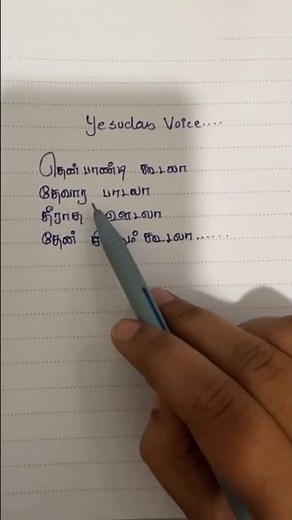 Yesudas Voice....
தென்பாண்டி கூடலா
தேவார பாடலா
தீராத ஊடலா
தேன் கூடலா......